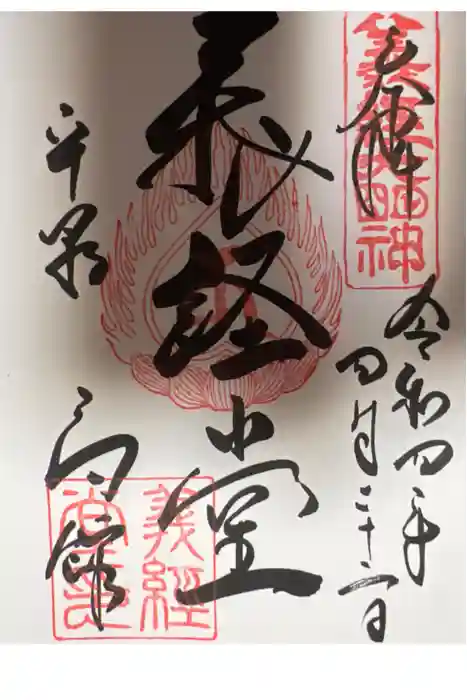 奉拝
義經大明神
令和四年
四月二十二日
義経堂
平泉
高館
義經
堂印